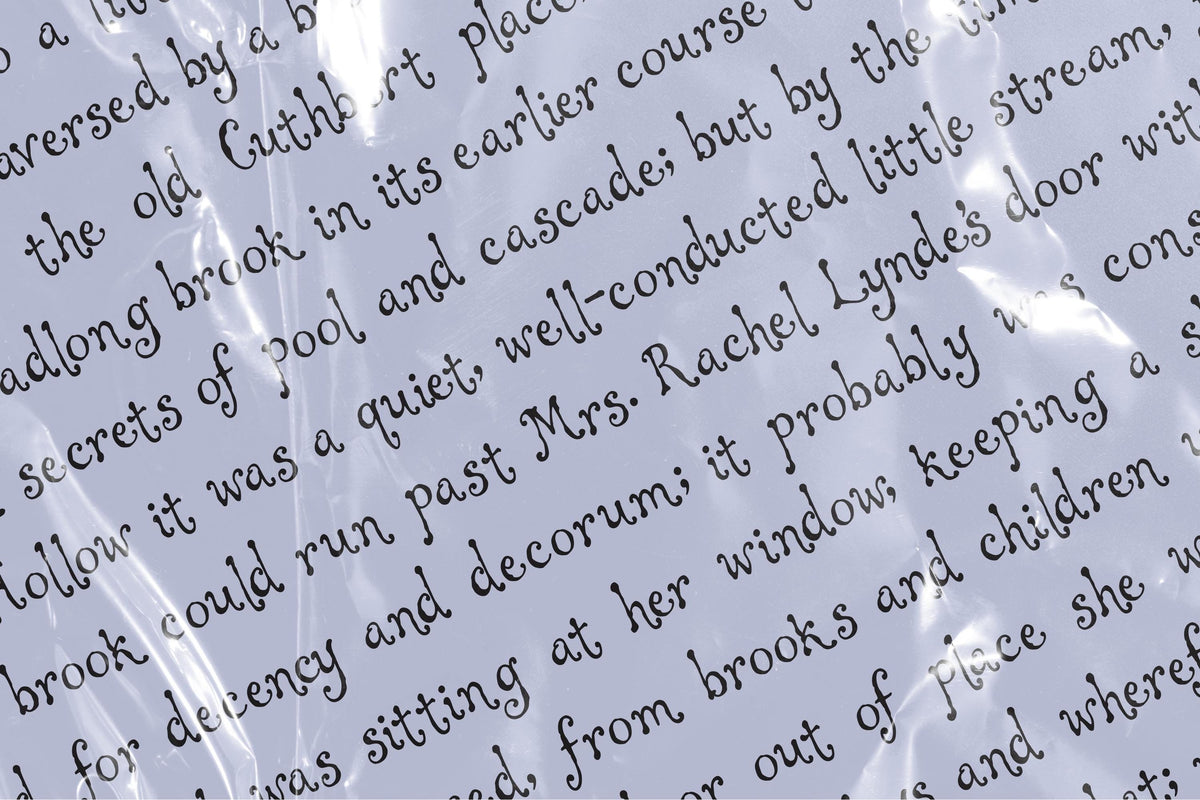 a litt
aversed by a b
the old Cuthbert place,
adlong brook in its earlier course t
secrets of pool and cascade; but by the tim
Hollow it was a quiet, well-conducted little stream,
brook could run past Mrs. Rachel Lynde's door wit
d for decency and decorum; it probably was cons
was sitting at her window, keeping a s
ed, from brooks and children
or out of place she w
s and wheref